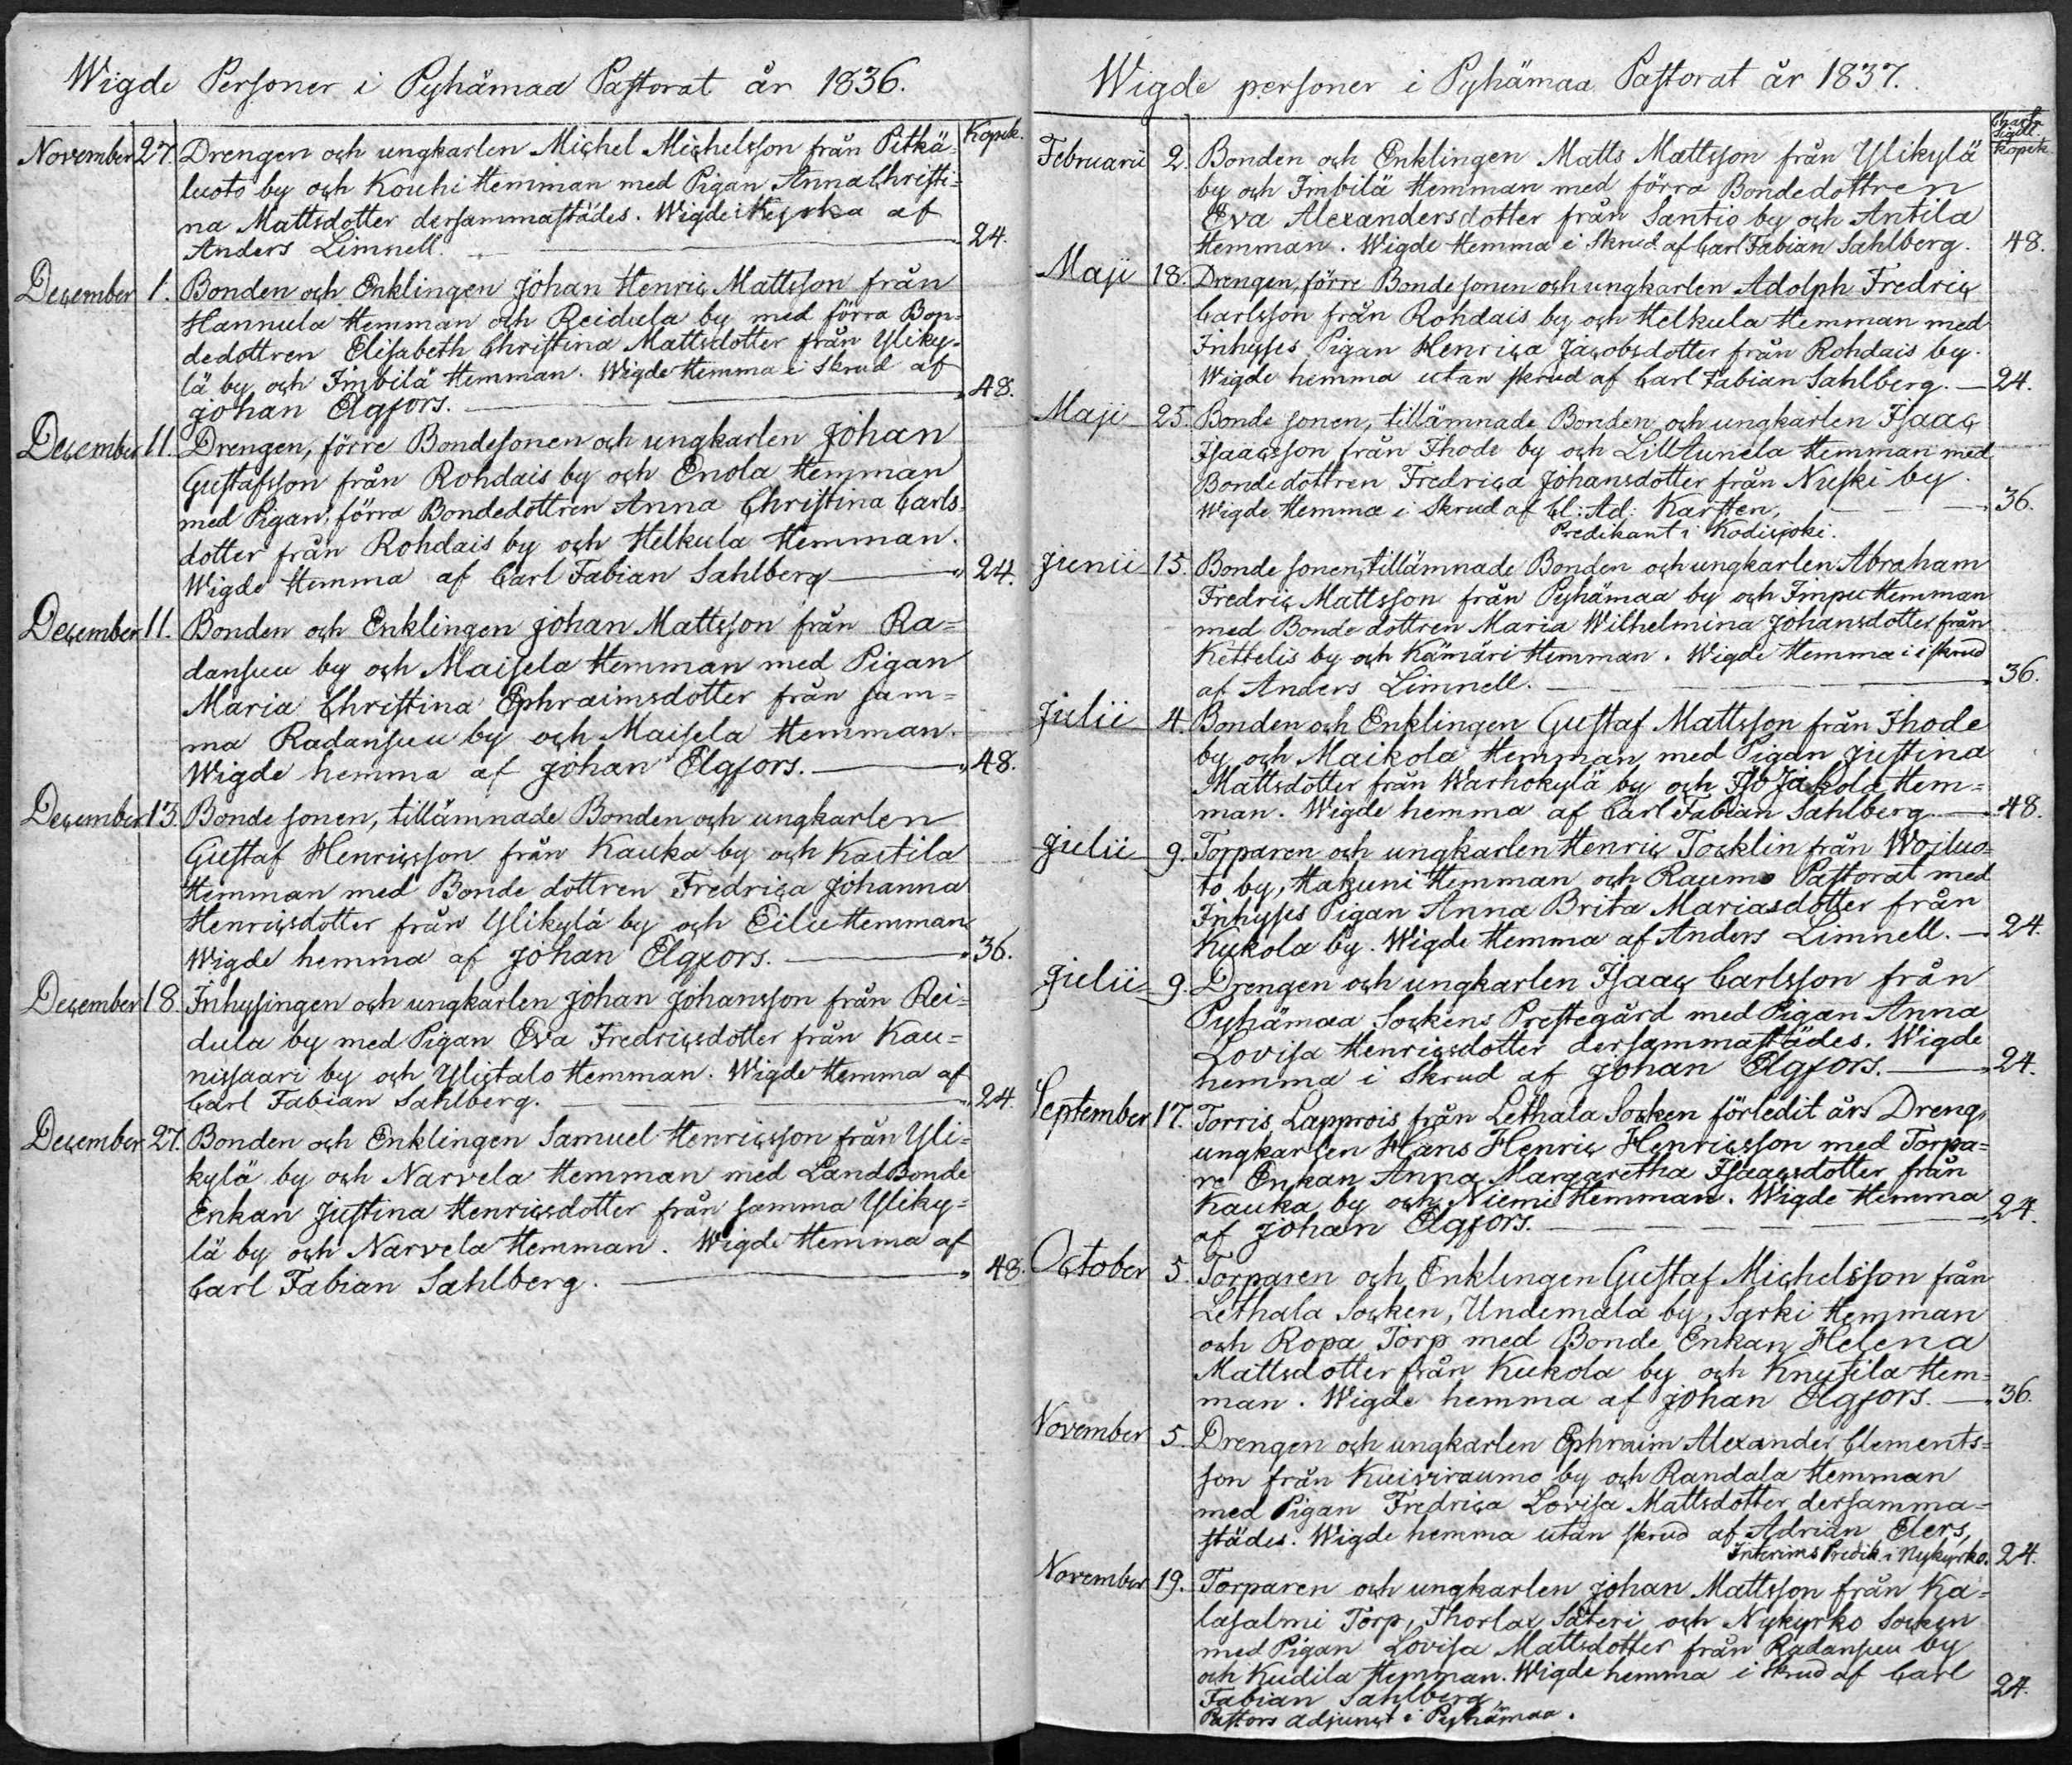 Wigde Personer i Pyhämaa Pastorat år 1836.
Kopek.
November 27. Drengen och ungkarlen Michel Michelsson från Pitkä-
luoto by och Kouhi Hemman med Pigan Anna Christi-
na Mattsdotter dersammastädes. Wigde i Kyrka af
Anders Limnell. 24.
December 1. Bonden och Enklingen Johan Henric Mattsson från
Hannula Hemman och Reidula by med förra Bon-
dedottren Elisabeth Christina Mattsdotter från Yliky-
lä by och Imbilä Hemman. Wigde Hemma i Skrud af
Johan Elgfors. 48.
December 11. Drengen, förre Bondesonen och ungkarlen Johan
Gustafsson från Rohdais by och Enola Hemman
med Pigan, förra Bondedottren Anna Christina Carls-
dotter från Rohdais by och Helkula Hemman.
Wigde Hemma af Carl Fabian Sahlberg 24.
December 11. Bonden och Enklingen Johan Mattsson från Ra-
dansuu by och Maisela Hemman med Pigan
Maria Christina Ephraimsdotter från sam-
ma Radansuu by och Maisela Hemman.
Wigde hemma af Johan Elgfors. 48.
December 13. Bonde sonen, tillämnade Bonden och ungkarlen
Gustaf Henricsson från Kauka by och Kastila
Hemman med Bonde dottren Fredrica Johanna
Henricsdotter från Ylikylä by och Eilu Hemman
Wigde hemma af Johan Elgfors. 36.
December 18. Inhysingen och ungkarlen Johan Johansson från Rei-
dula by med Pigan Eva Fredricsdotter från Kau-
nissaari by och Ylistalo Hemman. Wigde Hemma af
Carl Fabian Sahlberg. 24.
December 27. Bonden och Enklingen Samuel Henricsson från Yli-
kylä by och Narvela Hemman med Land Bonde
Enkan Justina Henricsdotter från samma Yliky-
lä by och Narvela Hemman. Wigde Hemma af
Carl Fabian Sahlberg. 48.
Wigde personer i Pyhämaa Pastorat år 1837.
Charta
Sigill.
Kopek
Februarii 2. Bonden och Enklingen Matts Mattsson från Ylikylä
by och Imbilä Hemman med förra Bondedottren
Eva Alexandersdotter från Santio by och Antila
Hemman. Wigde Hemma i Skrud af Carl Fabian Sahlberg. 48.
Maji 18. Drengen, förre Bonde sonen och ungkarlen Adolph Fredric
Carlsson från Rohdais by och Helkula Hemman med
Inhyses Pigan Henrica Jacobsdotter från Rohdais by.
Wigde hemma utan skrud af Carl Fabian Sahlberg. 24.
Maji 25. Bonde sonen, tillämnade Bonden och ungkarlen Isaac
Isaacsson från Ihode by och LillAunela Hemman med
Bondedottren Fredrica Johansdotter från Nuski by.
Wigde Hemma i Skrud af Cl: Ad: Karsten, 36.
Predikant i Kodisjoki.
Junii 15. Bonde sonen, tillämnade Bonden och ungkarlen Abraham
Fredric Mattsson från Pyhämaa by och Impu Hemman
med Bonde dottren Maria Wilhelmina Johansdotter från
Kettelis by och Kämäri Hemman. Wigde Hemma i i skrud
af Anders Limnell. 36.
Julii 4. Bonden och Enklingen Gustaf Mattsson från Ihode
by och Maikola Hemman med Pigan Justina
Mattsdotter från Warhokylä by och Iso Jakola Hem-
man. Wigde hemma af Carl Fabian Sahlberg 48.
Julii 9. Torparen och ungkarlen Henric Tocklin från Woiluo-
to by, Hakuni Hemman och Raumo Pastorat med
Inhyses Pigan Anna Brita Mariasdotter från
Kukola by. Wigde Hemma af Anders Limnell. 24.
Julii 9. Drengen och ungkarlen Isaac Carlsson från
Pyhämaa Sockens Prestegård med Pigan Anna
Lovisa Henricsdotter dersammastädes. Wigde
hemma i Skrud af Johan Elgfors. 24.
September 17. Torris Lapprois från Lethala Socken förledit års Dreng,
ungkarlen Hans Henric Henricsson med Torpa-
re Enkan Anna Margaretha Isaacsdotter från
Kauka by och Niemi Hemman. Wigde Hemma
af Johan Elgfors. 24.
October 5. Torparen och Enklingen Gustaf Michelsson från
Lethala Socken, Undemala by, Sarki Hemman
och Ropa Torp med Bonde Enkan Helena
Mattsdotter från Kukola by och Knutila Hem-
man. Wigde hemma af Johan Elgfors. 36.
November 5. Drengen och ungkarlen Ephraim Alexander Clements-
son från Kuiviraumo by och Randala Hemman
med Pigan Fredrica Lovisa Mattsdotter dersamma-
städes. Wigde hemma utan skrud af Adrian Elers,
Interims Predik. i Nykyrko. 24.
November 19. Torparen och ungkarlen Johan Mattsson från Ka-
lasalmi Torp, Thorlax Säteri och Nykyrko Socken
med Pigan Lovisa Mattsdotter från Radansuu by
och Kudila Hemman. Wigde hemma i skrud af Carl
Fabian Sahlberg, 24.
Pastors adjunct i Pyhämaa.